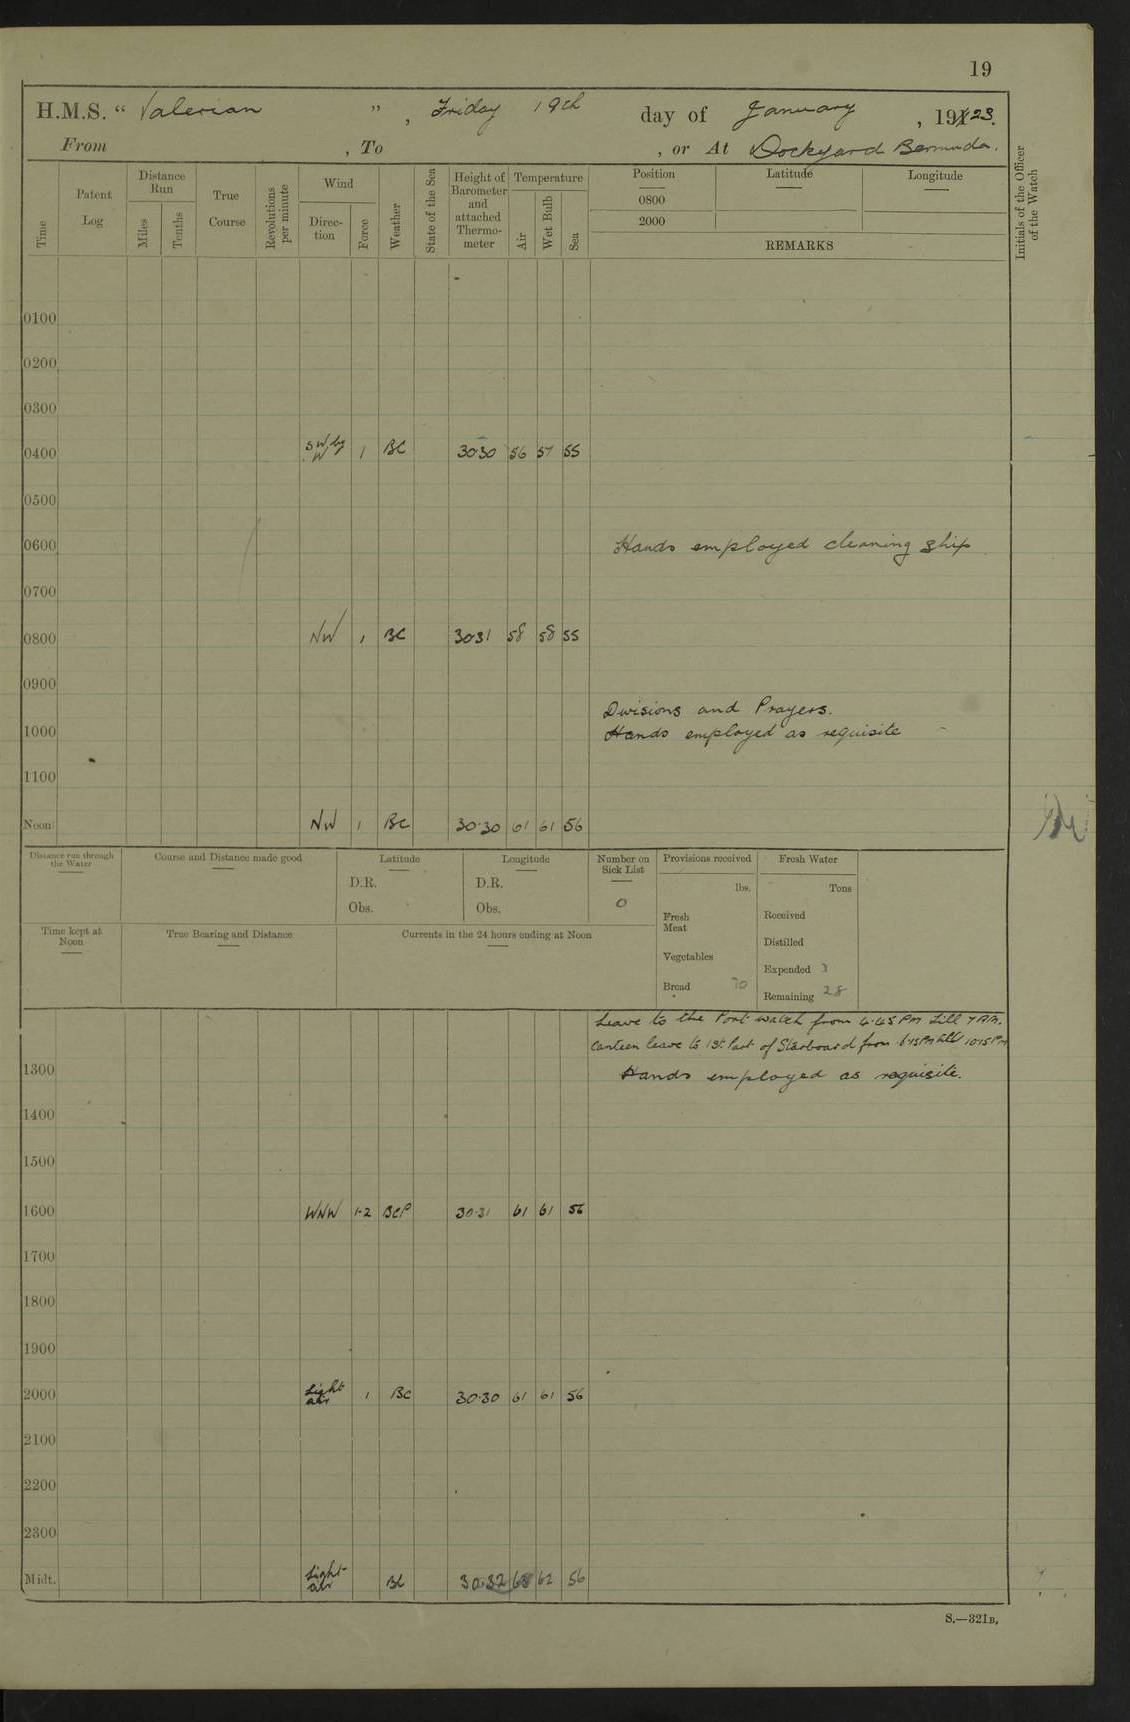 19
H.M.S. “ Valerian ” , Friday 19th day of January , 19123.
From , To , or At Dockyard Bermuda.
Time
Patent Log
Distance Run
Miles
Tenths
True Course
Revolutions per minute
Wind
Direc- tion
Force
Weather
State of the Sea
Height of Barometer and attached Thermo- meter
Temperature
Air
Wet Bulb
Sea
Position
0800
2000
Latitude
Longitude
REMARKS
Initials of the Officer of the Watch
0100
0200
0300
0400 SW by W 1 BC 30·30 56 57 55
0500
0600 Hands employed cleaning ship
0700
0800 NW 1 BC 30·31 58 58 55
0900
Divisions and Prayers.
1000 Hands employed as requisite
1100
Noon NW 1 BC 30·30 61 61 56
Distance run through the Water
Course and Distance made good
Latitude
D.R.
Obs.
Longitude
D.R.
Obs.
Number on Sick List
0
Provisions received
lbs.
Fresh Meat
Vegetables
Bread 70
Fresh Water
Tons
Received
Distilled
Expended 3
Remaining 28
Time kept at Noon
True Bearing and Distance
Currents in the 24 hours ending at Noon
Leave to the Port watch from 4·45 PM till 7 AM.
Canteen leave to 1st Part of Starboard from till 10·15 PM
1300 Hands employed as requisite.
1400
1500
1600 WNW 1-2 BCP 30·31 61 61 56
1700
1800
1900
2000 Light air 1 BC 30·30 61 61 56
2100
2200
2300
Midt. Light air BC 30·32 62 56
S.—321B.